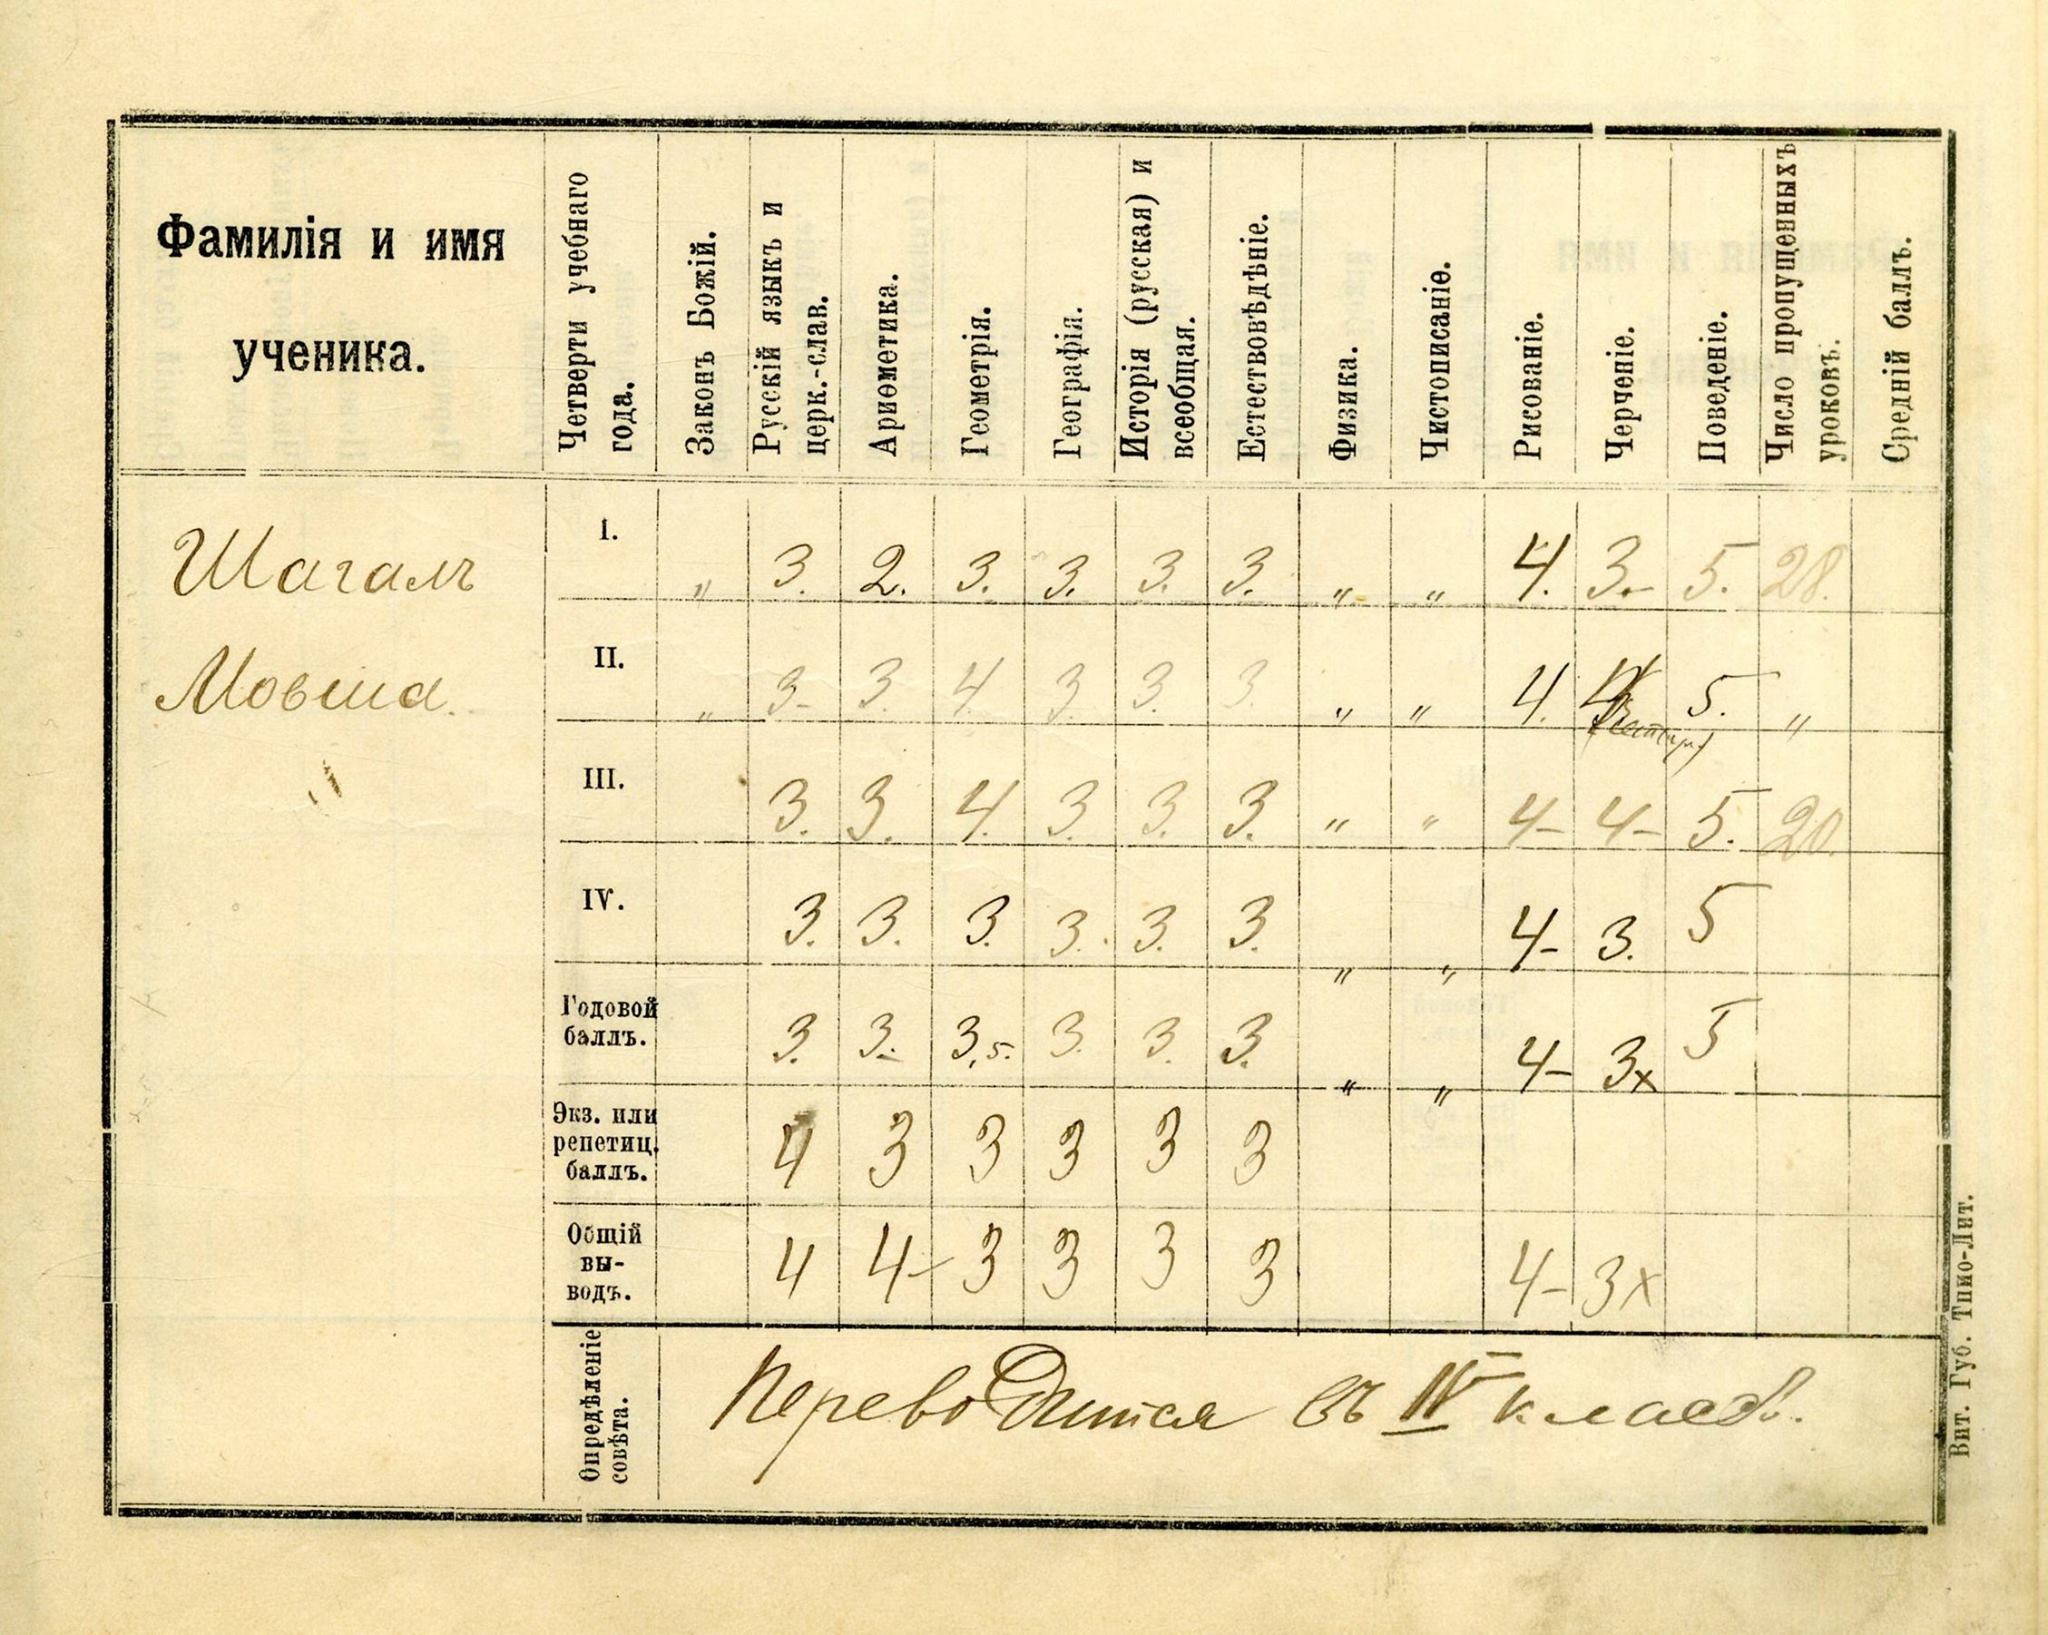 Фамилія и имя
ученика.
Четверти учебнаго
года.
Законъ Божій.
Русскій языкъ и
церк.-слав.
Ариѳметика.
Геометрія.
Географія.
Исторія (русская) и
всеобщая.
Естествовѣдѣніе.
Физика.
Чистописаніе.
Рисованіе.
Черченіе.
Поведеніе.
Число пропущенныхъ
уроковъ.
Средній баллъ.
Шагалъ
Мовша.
I.
„ 3. 2. 3. 3. 3. 3. „ „ 4. 3.- 5. 28.
II.
„ 3- 3. 4. 3. 3. 3. „ „ 4. 5. „
III.
3. 3. 4. 3. 3. 3. „ „ 4- 4- 5. 20.
IV.
3. 3. 3. 3. 3. 3. „ „ 4- 3. 5
Годовой
баллъ.
3. 3.- 3,5. 3. 3. 3. „ „ 4- 3x 5
Экз. или
репетиц.
баллъ.
4 3 3 3 3 3
Общій
вы-
водъ.
4 4- 3 3 3 3 4- 3x
Опредѣленіе
совѣта.
Переводится въ IV классъ.
Вит. Губ. Типо-Лит.